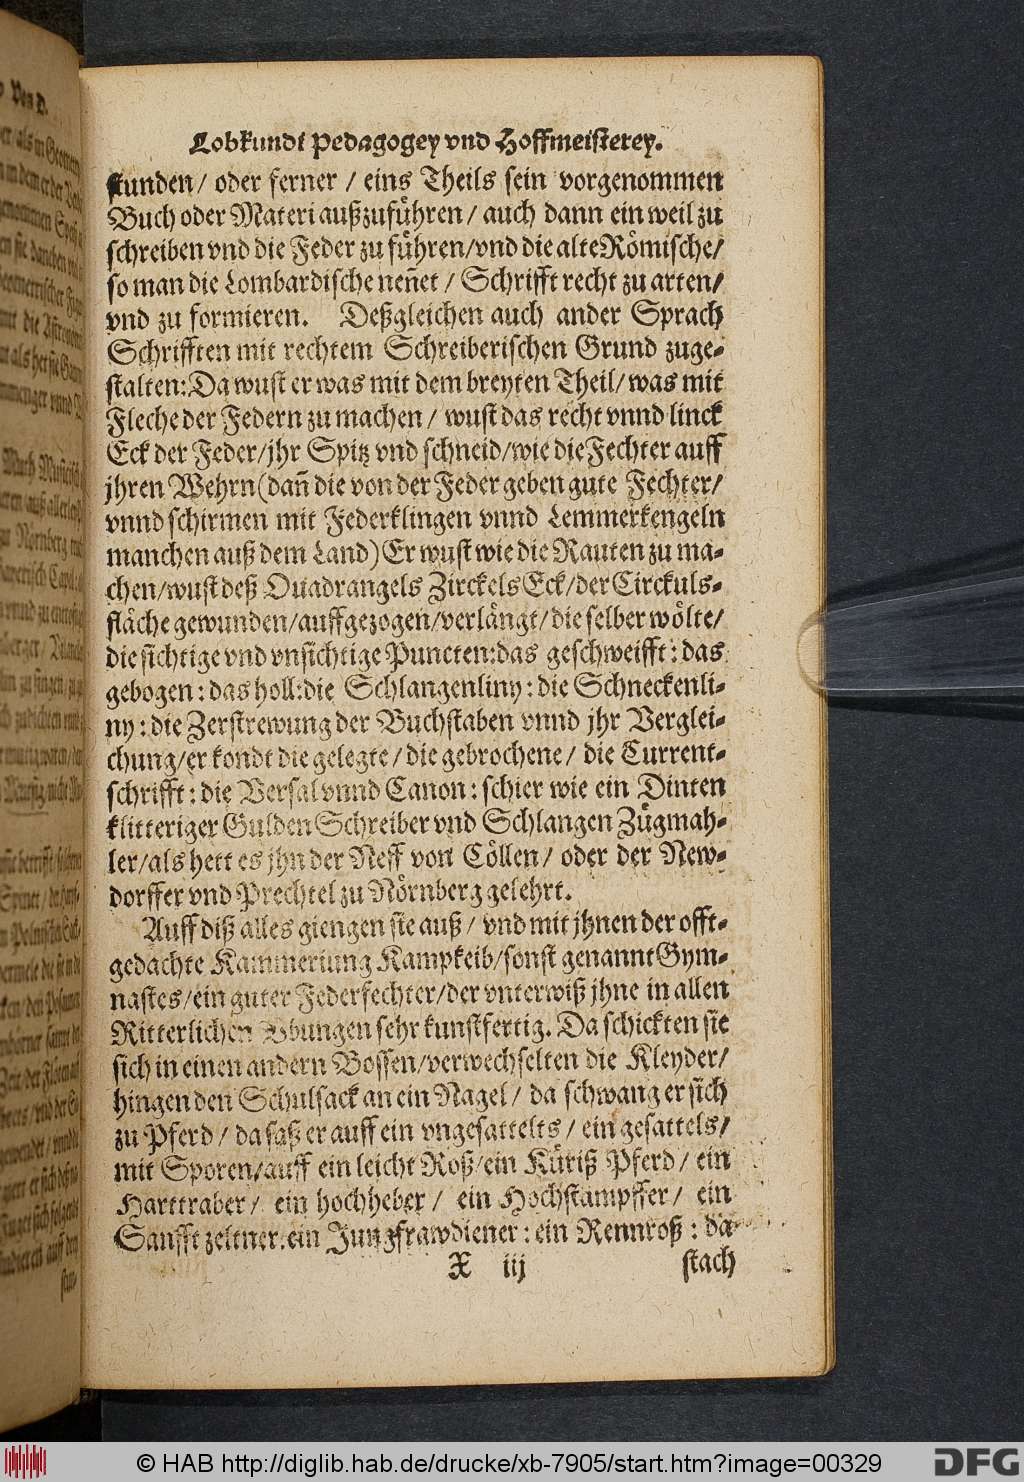 Lobkundi Pedagogey vnd Hoffmeisterey.
stunden/ oder ferner / eins Theils sein vorgenommen
Buch oder Materi außzuführen / auch dann ein weil zu
schreiben vnd die Feder zu führen/vnd die alte Römische/
so man die Lombardische neñet / Schrifft recht zu arten/
vnd zu formieren. Deßgleichen auch ander Sprach
Schrifften mit rechtem Schreiberischen Grund zuge-
stalten: Da wust er was mit dem breyten Theil/ was mit
Fleche der Federn zu machen / wust das recht vnnd linck
Eck der Feder/jhr Spitz vnd schneid/wie die Fechter auff
jhren Wehrn(dañ die von der Feder geben gute Fechter/
vnnd schirmen mit Federklingen vnnd Lemmerkengeln
manchen auß dem Land) Er wust wie die Rauten zu ma-
chen/wust deß Quadrangels Zirckels Eck/der Circkuls-
fläche gewunden/auffgezogen/verlängt/die selber wölte/
die sichtige vnd vnsichtige Puncten:das geschweifft : das
gebogen : das holl:die Schlangenliny : die Schneckenli-
ny : die Zerstrewung der Buchstaben vnnd jhr Verglei-
chung/er kondt die gelegte / die gebrochene / die Current-
schrifft : die Versal vnnd Canon : schier wie ein Dinten
klitteriger Gulden Schreiber vnd Schlangen Zügmah-
ler/als hett es jhn der Neff von Cöllen/ oder der New-
dorffer vnd Prechtel zu Nörnberg gelehrt.
Auff diß alles giengen sie auß / vnd mit jhnen der offt-
gedachte Kammeriung Kampkeib/sonst genannt Gym-
nastes/ein guter Federfechter/der vnterwiß jhne in allen
Ritterlichen Vbungen sehr kunstfertig. Da schickten sie
sich in einen andern Bossen/verwechselten die Kleyder/
hingen den Schulsack an ein Nagel / da schwang er sich
zu Pferd / da saß er auff ein vngesattelts / ein gesattels/
mit Sporen/auff ein leicht Roß/ein Küriß Pferd / ein
Harttraber/ ein hochheber / ein Hochstampffer/ ein
Sanfft zeltner.ein Jungfrawdiener : ein Rennroß : da
X iij stach
© HAB http://diglib.hab.de/drucke/xb-7905/start.htm?image=00329
DFG